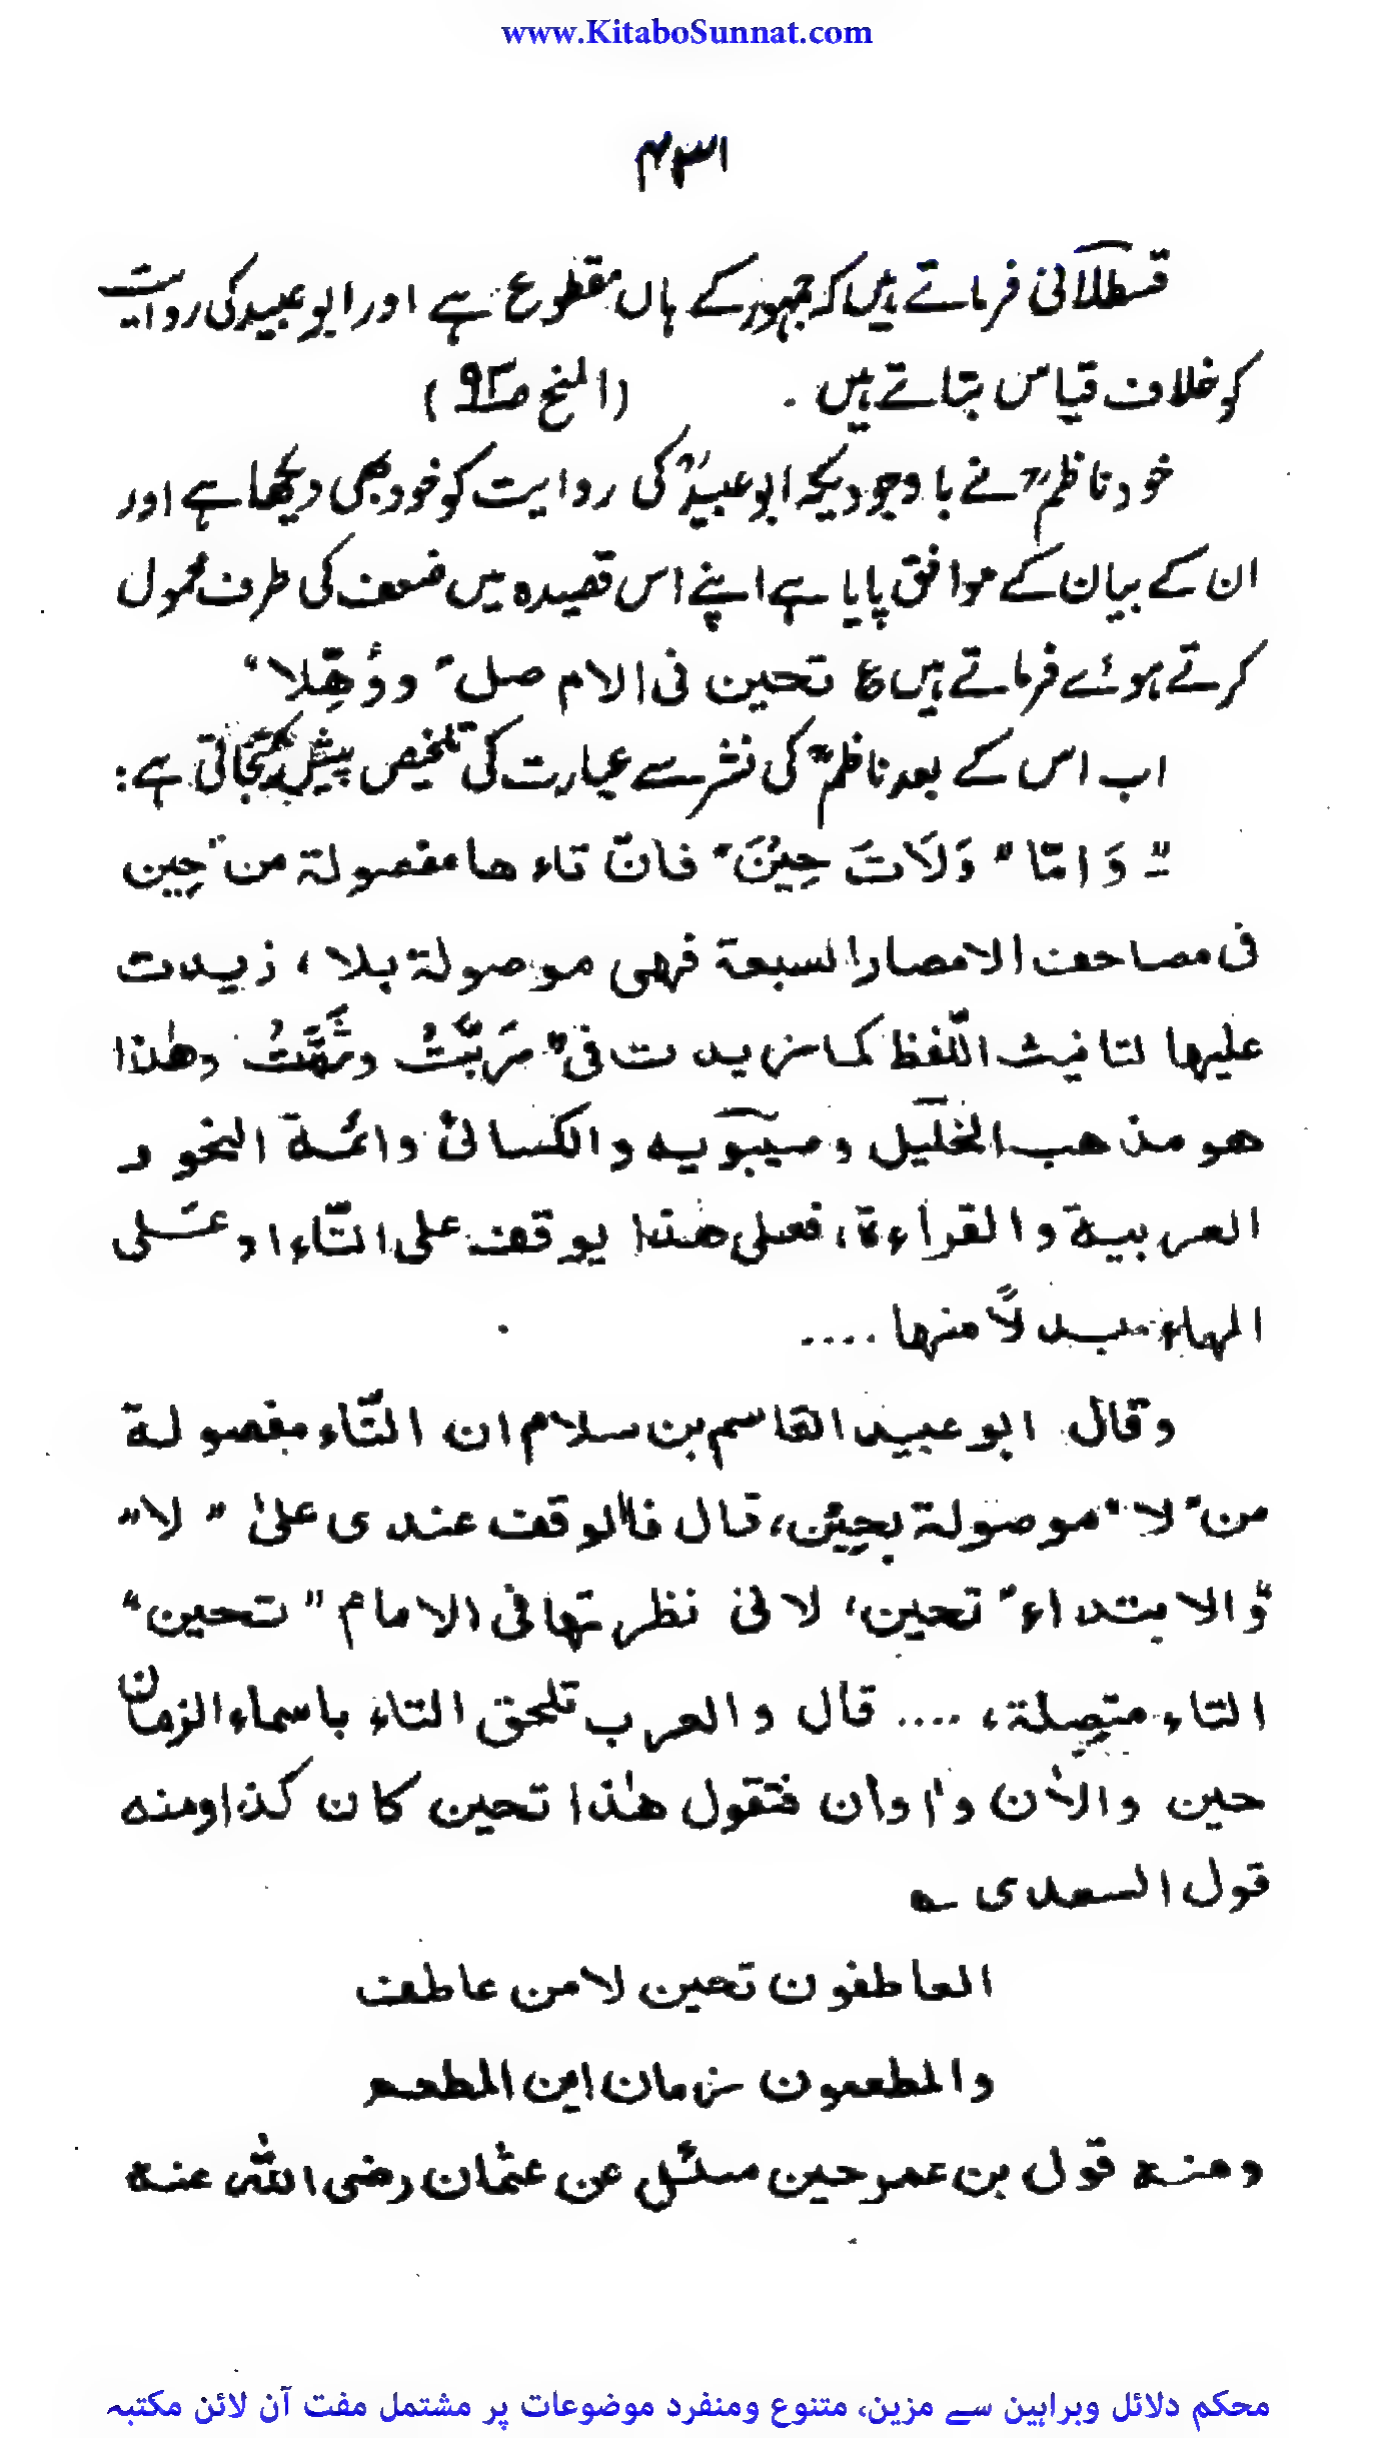 www.KitaboSunnat.com
۴۳۱
قسطلانی فرماتے ہیں کہ جمہور کے ہاں مقطوع ہے اور ابو عبید کی روایت
کو خلاف قیاس بتاتے ہیں ۔ (المنح ص۹۳)
خود ناظمؒ نے باوجودیکہ ابو عبیدؒ کی روایت کو خود بھی دیکھا ہے اور
ان کے بیان کے موافق پایا ہے اپنے اس قصیدہ میں ضعف کی طرف محمول
کرتے ہوئے فرماتے ہیں ع تحین فی الام صل ” ووُهِّلا “
اب اس کے بعد ناظمؒ کی نثر سے عبارت کی تلخیص پیش کیجاتی ہے :
” وَ امّا ” وَلَاتَ حِیْنَ “ فانّ تاء ها مفصولة من ” حِین
فی مصاحف الامصار السبعة فهی موصولة بلا ، زیدت
علیها لتانیث اللّفظ کما زیدت فی ” رَبَّتُ وثَمَّتُ وهٰذا
هو مذهب الخلیل وسیبویه والکسائی وائمة النحو و
العربیة والقراءة، فعلی هٰذا یوقف علی التّاء او عَلی
الهاء بدلًا منها ....
وقال ابو عبید القاسم بن سلام ان التّاء مفصولة
من ” لا “ موصولة بحِیْن، قال فالوقف عندی علیٰ ” لا “
والابتداء ” تحین، لانی نظرتها فی الامام ” تحین “
التاء متّصلة، .... قال والعرب تلحق التاء باسماء الزمان
حین والاٰن واوان فتقول هٰذا تحین کان کذا ومنه
قول السعدی ؎
العاطفون تحین لامن عاطف
والمطعمون زمان این المطعم
ومنه قول بن عمر حین سئل عن عثمان رضی الله عنه
محکم دلائل وبراہین سے مزین، متنوع ومنفرد موضوعات پر مشتمل مفت آن لائن مکتبہ